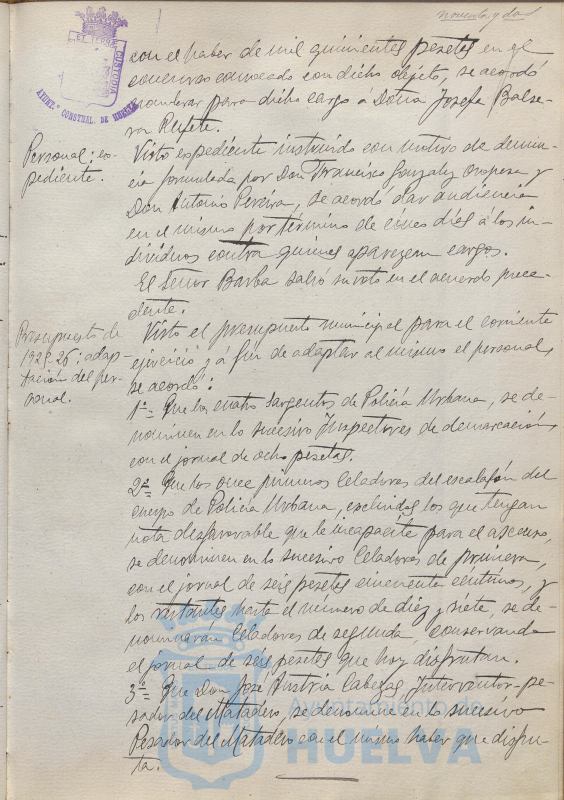 noventa y dos
EL TERRÆ CUSTODIA
AYUNT.º CONSTNAL. DE HUELVA
con el haber de mil quinientas pesetas en el
concurso convocado con dicho objeto, se acordó
nombrar para dicho cargo á Doña Josefa Balse-
ra Rufete.
Personal: ex-
pediente.
Visto expediente instruido con motivo de denun-
cia formulada por Don Francisco Gonzalez Oropesa y
Don Antonio Pereira, se acordó dar audiencia
en el mismo por término de cinco días á los in-
dividuos contra quienes aparezcan cargos.
El Señor Barba salvó su voto en el acuerdo prece-
dente.
Presupuesto de
1925-26: adap-
tación del per-
sonal.
Visto el presupuesto municipal para el corriente
ejercicio y á fin de adaptar al mismo el personal,
se acordó:
1º= Que los cuatro Sargentos de Policía Urbana, se de-
nominen en lo sucesivo Inspectores de demarcación,
con el jornal de ocho pesetas.
2º= Que los once primeros Celadores del escalafón del
cuerpo de Policía Urbana, excluidos los que tengan
nota desfavorable que le incapacite para el ascenso,
se denominen en lo sucesivo Celadores de primera,
con el jornal de seis pesetas cincuenta céntimos, y
los restantes hasta el número de diez y siete, se de-
nominarán Celadores de segunda, conservando
el jornal de seis pesetas que hoy disfrutan.
3º= Que Don José Austria Cabezas, Interventor-pe-
sador del Matadero, se denomine en lo sucesivo
Pesador del Matadero con el mismo haber que disfru-
ta.
Ayuntamiento de
HUELVA